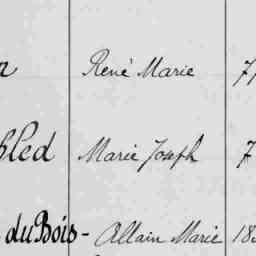 René Marie
Marie Joseph
du Bois - Allain Marie 18